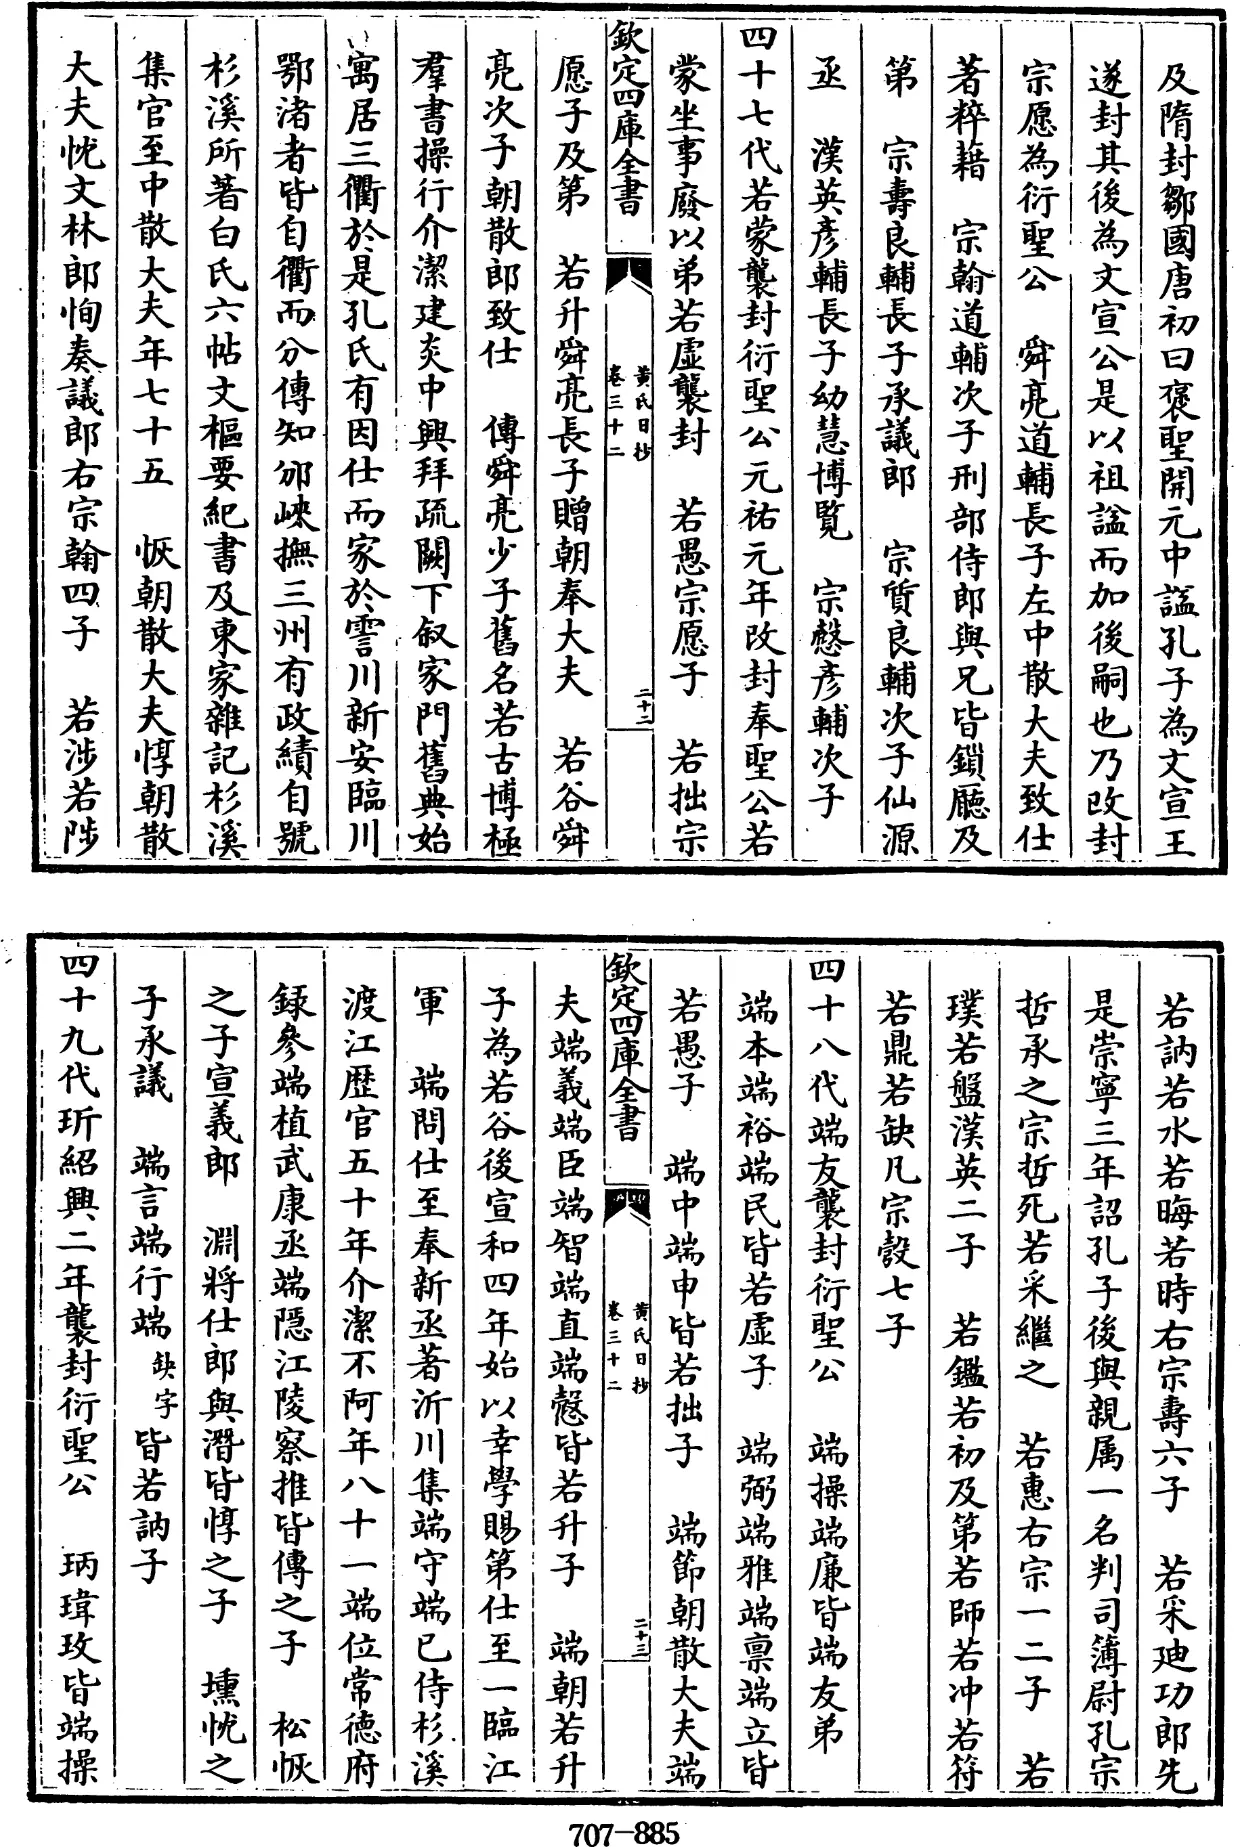 及隋封鄒國唐初曰褒聖開元中諡孔子為文宣王
遂封其後為文宣公是以祖諡而加後嗣也乃改封
宗愿為衍聖公　舜亮道輔長子左中散大夫致仕
著粹籍　宗翰道輔次子刑部侍郎與兄皆鎖廳及
第　宗壽良輔長子承議郎　宗質良輔次子仙源
丞　漢英彦輔長子幼慧博覧　宗慤彦輔次子
四十七代若蒙襲封衍聖公元祐元年改封奉聖公若
蒙坐事廢以弟若虚襲封　若愚宗愿子　若拙宗
欽定四庫全書
黄氏日抄
卷三十二
二十二
愿子及第　若升舜亮長子贈朝奉大夫　若谷舜
亮次子朝散郎致仕　傳舜亮少子舊名若古博極
羣書操行介潔建炎中興拜疏闕下叙家門舊典始
寓居三衢於是孔氏有因仕而家於霅川新安臨川
鄂渚者皆自衢而分傳知邠峽撫三州有政績自號
杉溪所著白氏六帖文樞要紀書及東家雜記杉溪
集官至中散大夫年七十五　恢朝散大夫惇朝散
大夫忱文林郎恂奏議郎右宗翰四子　若涉若陟
若訥若水若晦若時右宗壽六子　若采廸功郎先
是崇寧三年詔孔子後與親属一名判司簿尉孔宗
哲承之宗哲死若采繼之　若惠右宗一二子　若
璞若盤漢英二子　若鑑若初及第若師若冲若符
若鼎若缺凡宗殼七子
四十八代端友襲封衍聖公　端操端廉皆端友弟
端本端裕端民皆若虚子　端弼端雅端禀端立皆
若愚子　端中端申皆若拙子　端節朝散大夫端
欽定四庫全書
黄氏日抄
卷三十二
二十三
夫端義端臣端智端直端慤皆若升子　端朝若升
子為若谷後宣和四年始以幸學賜第仕至一臨江
軍　端問仕至奉新丞著沂川集端守端已侍杉溪
渡江歴官五十年介潔不阿年八十一端位常德府
録參端植武康丞端隠江陵察推皆傳之子　松恢
之子宣義郎　淵將仕郎與潛皆惇之子　壎忱之
子承議　端言端行端缺字皆若訥子
四十九代玠紹興二年襲封衍聖公　琇瑋玫皆端操
707-885